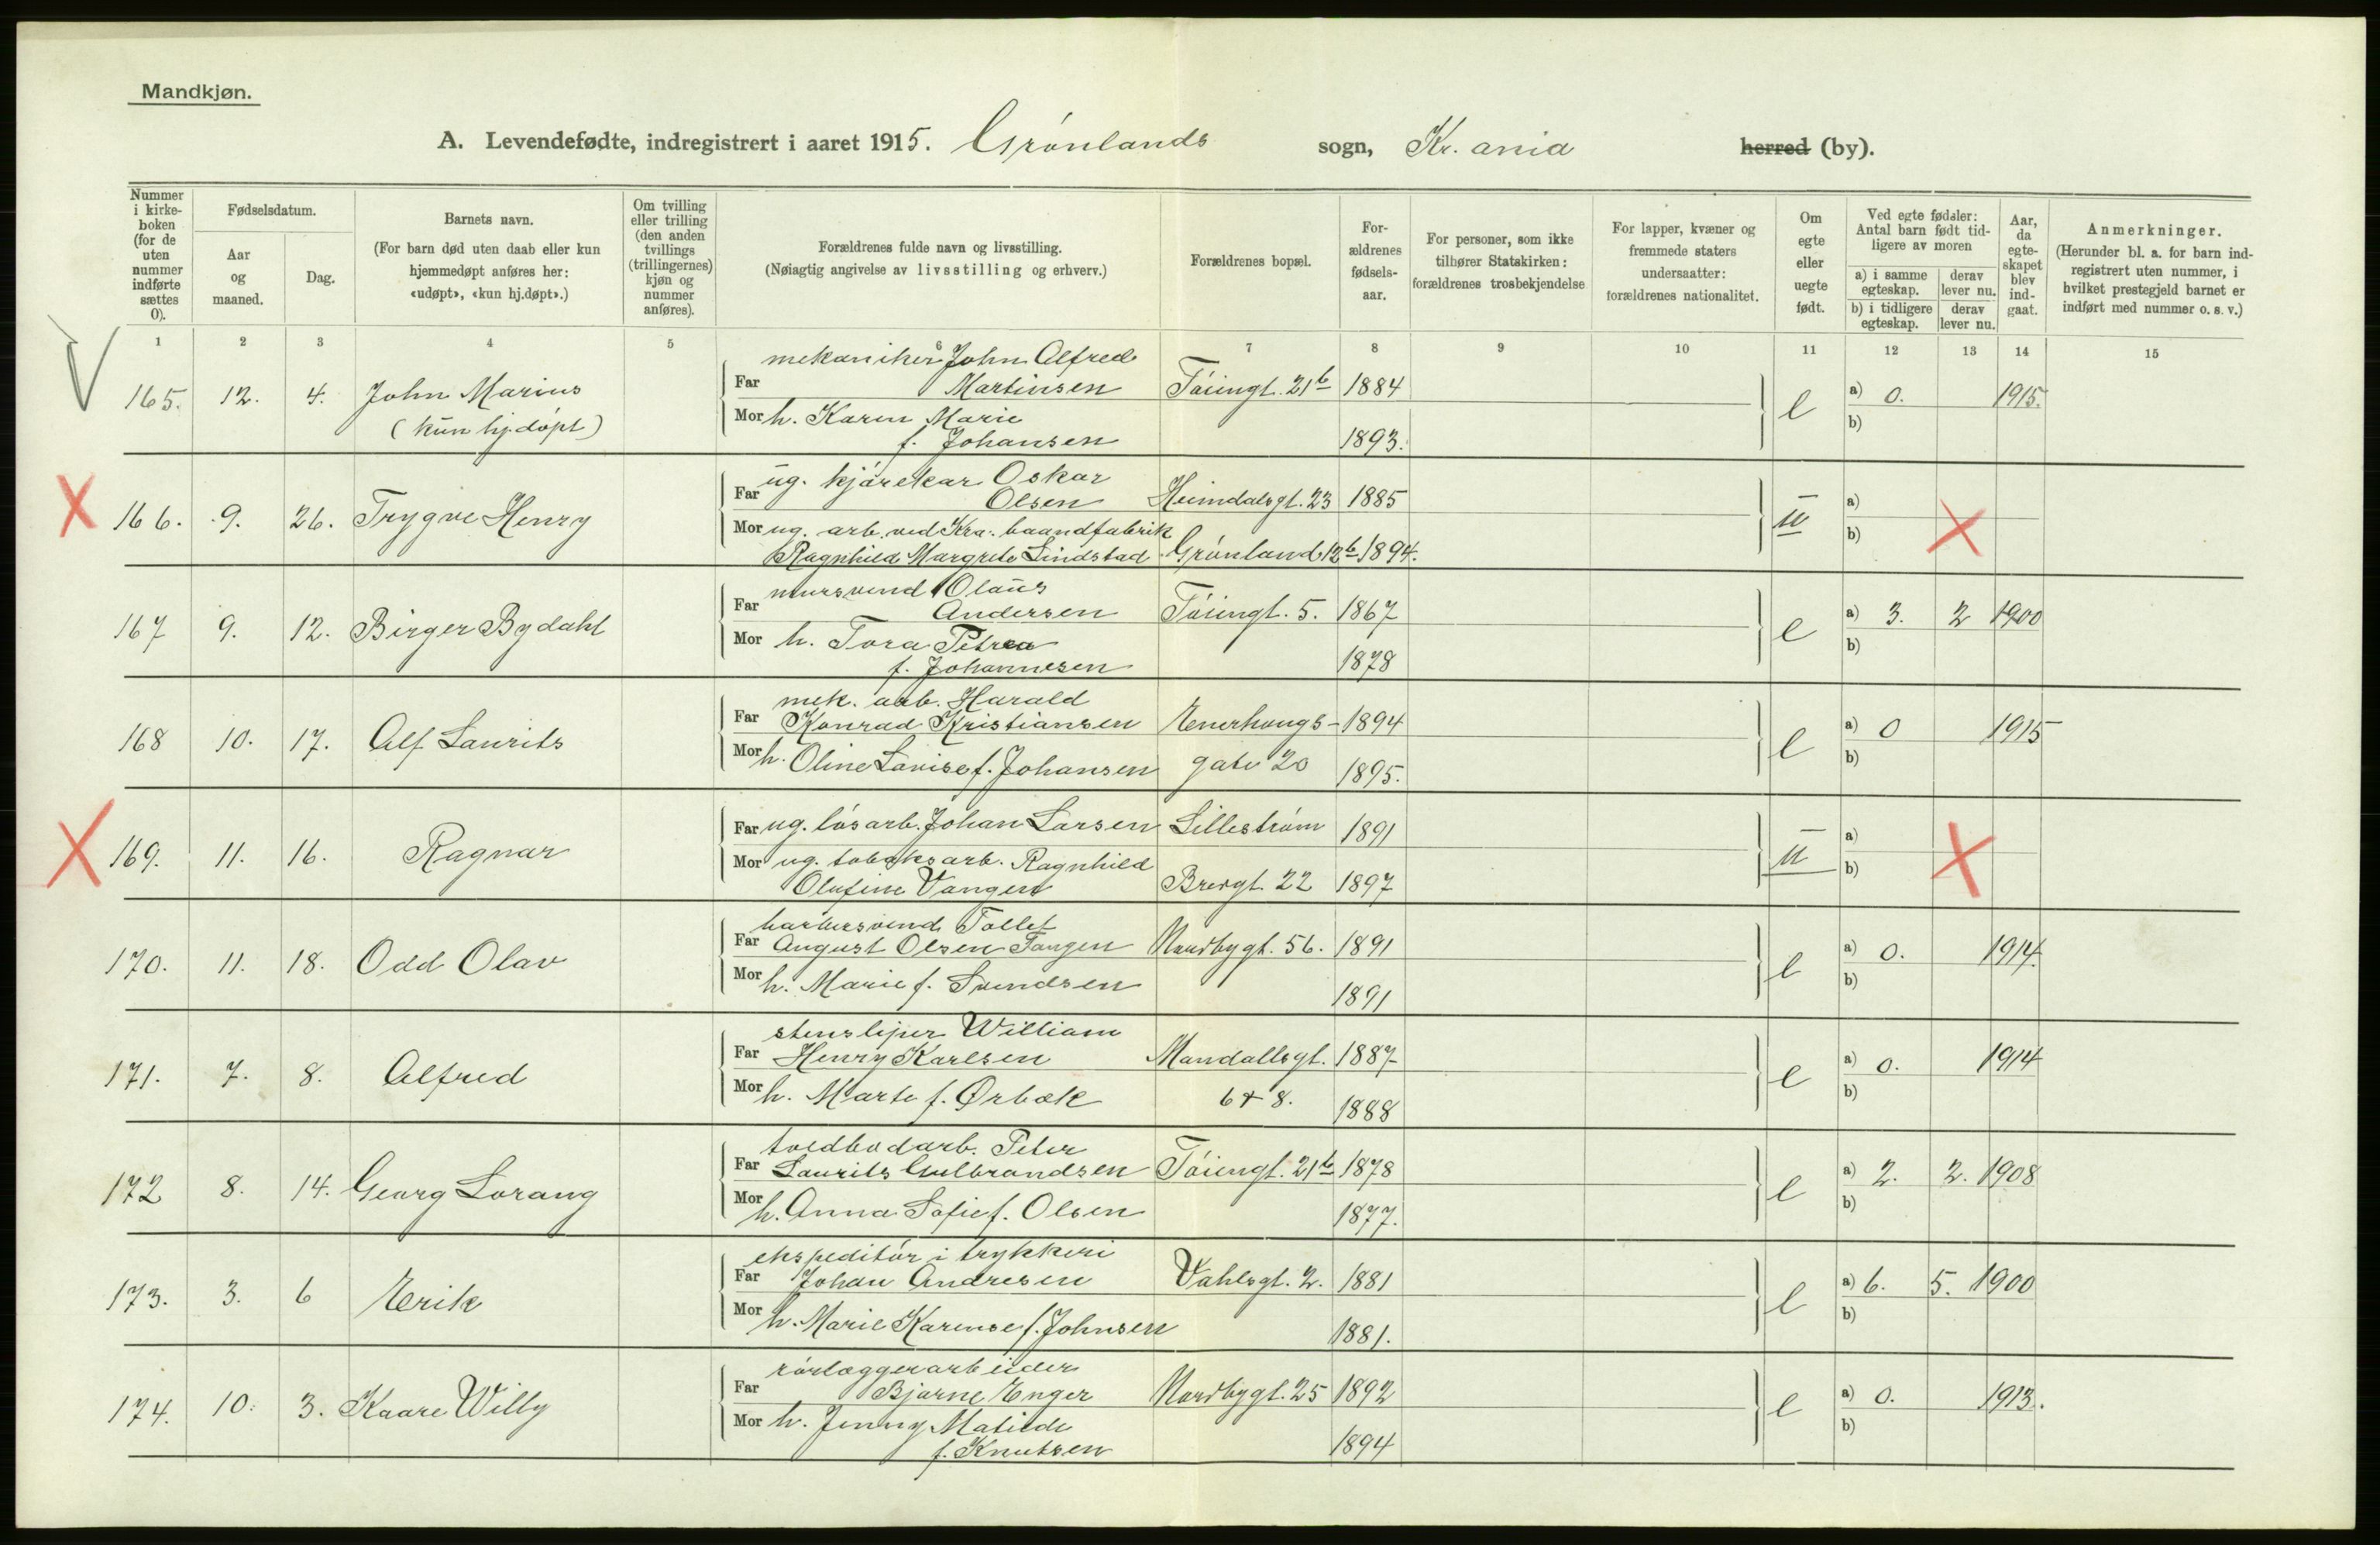 Mandkjøn.
A. Levendefødte, indregistrert i aaret 1915. Grønlands sogn, Kr.ania herred (by).
Nummer i kirke-boken (for de uten nummer indførte sættes 0).
Fødselsdatum.
Aar og maaned.
Dag.
Barnets navn.
(For barn død uten daab eller kun hjemmedøpt anføres her: «udøpt», «kun hj.døpt».)
Om tvilling eller trilling (den anden tvillings (trillingernes) kjøn og nummer anføres).
Forældrenes fulde navn og livsstilling.
(Nøiagtig angivelse av livsstilling og erhverv.)
Forældrenes bopæl.
For-ældrenes fødsels-aar.
For personer, som ikke tilhører Statskirken: forældrenes trosbekjendelse
For lapper, kvæner og fremmede staters undersaatter: forældrenes nationalitet.
Om egte eller uegte født.
Ved egte fødsler: Antal barn født tid-ligere av moren
a) i samme egteskap. derav lever nu.
b) i tidligere egteskap. derav lever nu.
Aar, da egte-skapet blev ind-gaat.
Anmerkninger.
(Herunder bl. a. for barn ind-registrert uten nummer, i hvilket prestegjeld barnet er indført med nummer o. s. v.)
1 2 3 4 5 6 7 8 9 10 11 12 13 14 15
mekaniker John Alfred
165. 12. 4. John Marius Far Martinsen Tøiengt. 21b 1884 e a) 0. 1915.
(kun hj.døpt) Mor h. Karen Marie b)
f. Johansen 1893.
ug. kjørekar Oskar
166. 9. 26. Trygve Henry Far Olsen Heimdalsgt. 23 1885 u a)
Mor ug. arb. ved Kra. baandfabrik b)
Ragnhild Margrete Lindstad Grønland 12b 1894.
mursvend Olaus
167 9. 12. Birger Bydahl Far Andersen Tøiengt. 5. 1867 e a) 3. 2 1900
Mor h. Tora Petrea b)
f. Johannesen 1878
mek. arb. Harald
168 10. 17. Alf Laurits Far Konrad Kristiansen Enerhougs- 1894 e a) 0 1915
Mor h. Oline Lovise f. Johansen gate 20 1895. b)
169. 11. 16. Ragnar Far ug. løsarb. Johan Larsen Lillestrøm 1891 u a)
Mor ug. tobaksarb. Ragnhild b)
Olufine Vangen Brevgt. 22 1897
barbersvend Tollef
170. 11. 18. Odd Olav Far August Olsen Tangen Nordbygt. 56. 1891 e a) 0. 1914.
Mor h. Marie f. Svendsen 1891 b)
stensliper William
171. 7. 8. Alfred Far Henry Karlsen Mandallsgt. 1887 e a) 0. 1914
Mor h. Marte f. Ørbæk 6 + 8. 1888 b)
toldbodarb. Peter
172 8. 14. Georg Lorang Far Laurits Gulbrandsen Tøiengt. 21b 1878 e a) 2. 2. 1908
Mor h. Anna Sofie f. Olsen 1877. b)
ekspeditør i trykkeri
173. 3. 6 Erik Far Johan Andresen Vahlsgt. 2. 1881 e a) 6. 5. 1900
Mor h. Marie Karense f. Johnsen 1881. b)
rørlæggerarbeider
174. 10. 3. Kaare Willy Far Bjarne Enger Nordbygt. 25 1892 e a) 0. 1913.
Mor h. Jenny Matilde b)
f. Knutsen 1894